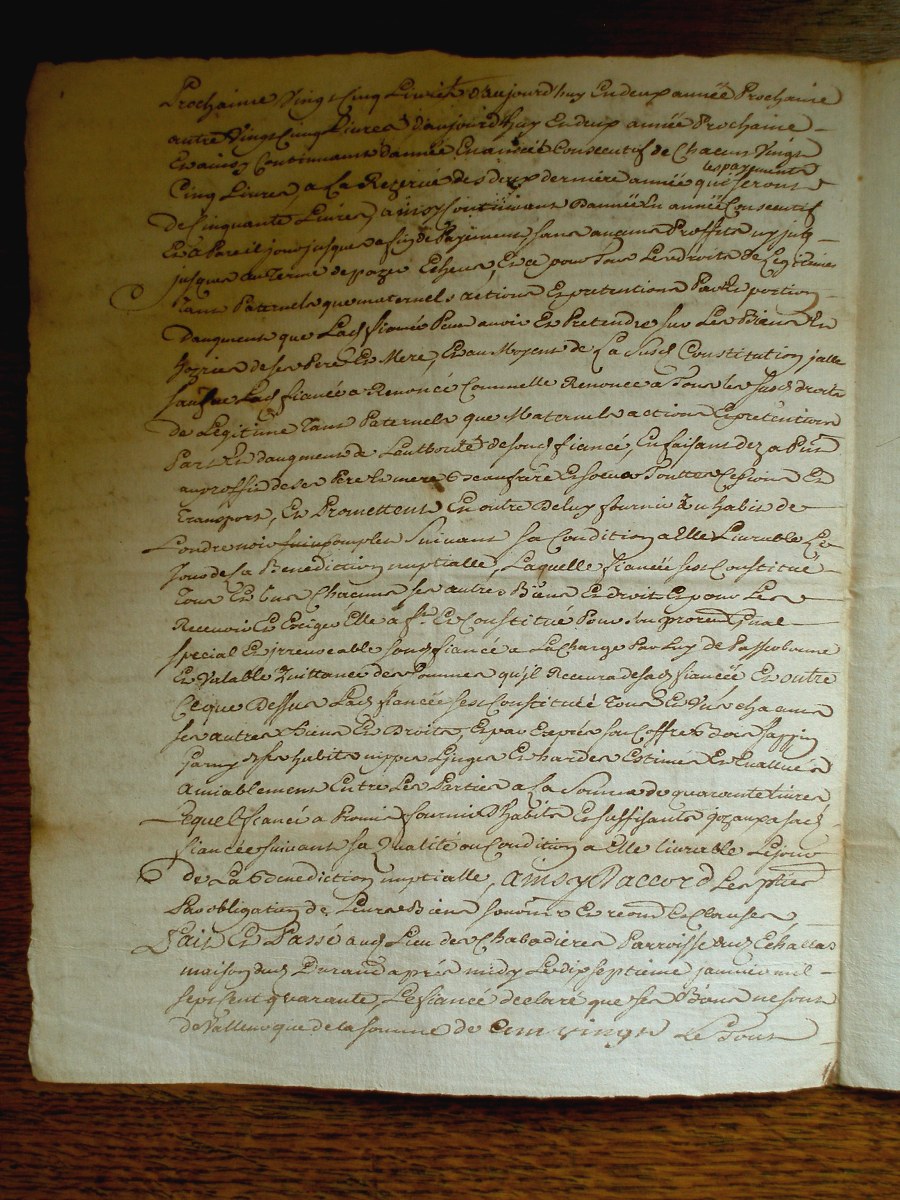 Prochaine Vingt Cinq Livres d'aujourd'huy En deux année Prochaine
autre Vingt Cinq Livres d'aujourd'huy En deux année Prochaine
En ainsy Continuant d'année En année Consecutif de Chacun Vingt
les payements
Cinq Livres, a La Rezerve des deux derniere année qui seront
de Cinquante Livres, ainsy Continuant D'année En année Consecutif
Et a Pareil jour jusques a fin de Payement sans aucuns Proffits ny
jusques au Terme de payer Echeus, Et ce pour Tous Les droits de Legitimes
Tant Paternels que maternels actions Et pretentions Part Et portion
daugment que Lad fiancée Peut avoir Et Pretendre sur Les Biens Et
de ses Pere Et Mere, Et au Moyent de La Susd Constitution
Lad fiancée a Renoncé Comme elle Renonce a Tous les susd droits
de Legitime Tant Paternels que Maternels actions Et pretention
Part Et daugment de Lauthorité de sond fiancé, En faisant dez a Pnt
au proffit de ses Pere Et mere & beaufrere Et soeur Touttes Cession Et
Transport, Et Promettent En outre de luy fournir un habit de
Londre noir Suivant sa Condition a Elle Livrable Le
Jour de sa Benediction nuptialle, Laquelle fiancée sest Constitué
Tous Et Uns Chacuns ses autres Biens Et droit Et pour Les
Recevoir Et Exiger Elle a ft. Et Constitué Pour son procur Gnal
special Et irrevocable sond fiancé a La Charge Par Luy de Passer bonne
Et Valable Quittance des Sommes qu'il Recevra de sad fiancée En outre
Ce que Dessus Lad fiancée sest Constitué Tous Et Uns chacuns
ses autres Biens Et Droits, Et par Exprés son Coffre bois sappin
Garny de ses habits nippes Linges Et hardes Estimés Et Evallués
amiablement Entre Les Parties a La Somme de quarante Livres
Lequel fiancé a Promis fournir d'habits Et suffisants joyaux a sad
fiancée suivant sa Qualité ou Condition a Elle livrable Le jour
de La Benediction nuptialle, ainsy D'accord Les pties
Par obligation de Leurs Biens Et Clauses
Fait Et Passé aud Lieu des Chabodieres Parroisse aud Echallas
maison dud Durand aprés midy Le dix septieme janvier mil
sept cent quarante, Le fiancé declaré que ses Biens ne sont
de Valleur que de la somme de Cent vingt Le Tout